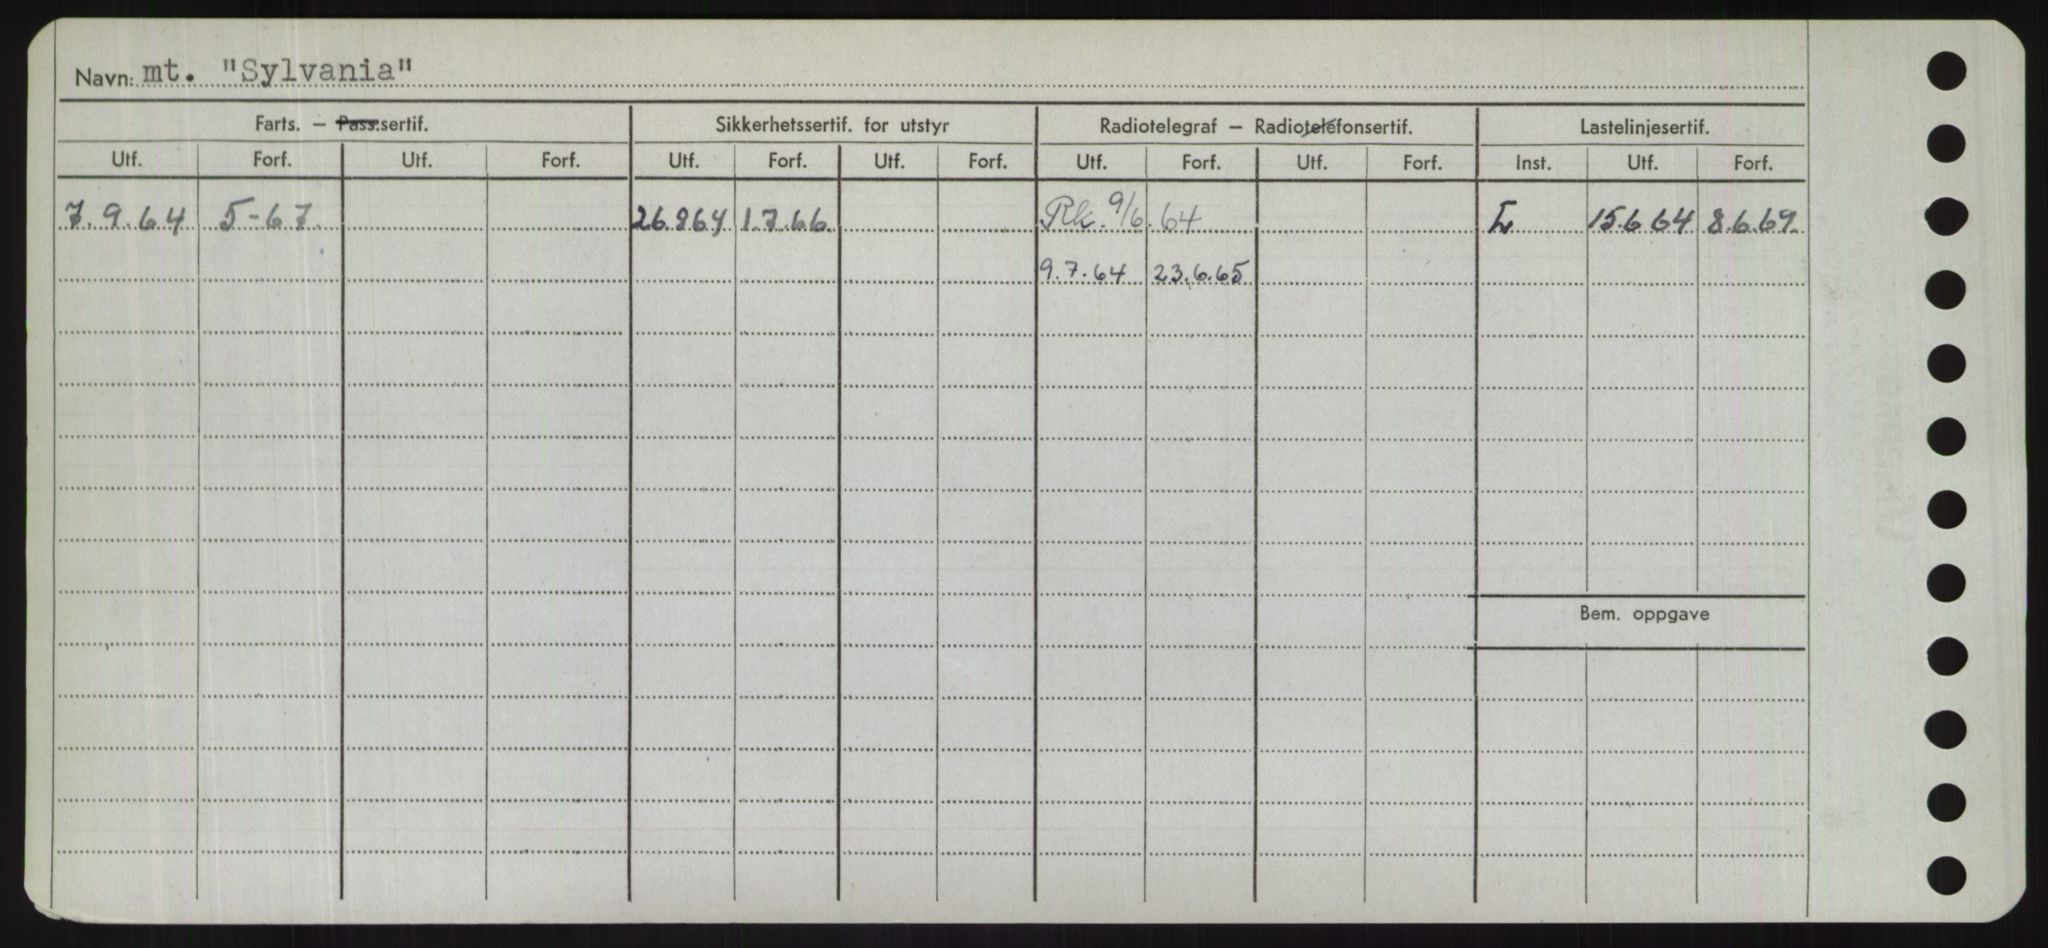 Navn: mt. "Sylvania"
Farts. — Pass.sertif. Sikkerhetssertif. for utstyr Radiotelegraf — Radiotelefonsertif. Lastelinjesertif.
Utf. Forf. Utf. Forf. Utf. Forf. Utf. Forf. Utf. Forf. Utf. Forf. Inst. Utf. Forf.
7.9.64 5-67. 26.8.64 1.7.66. Rk. 9/6. 64 L 15.6.64 8.6.69.
9.7.64 23.6.65
Bem. oppgave